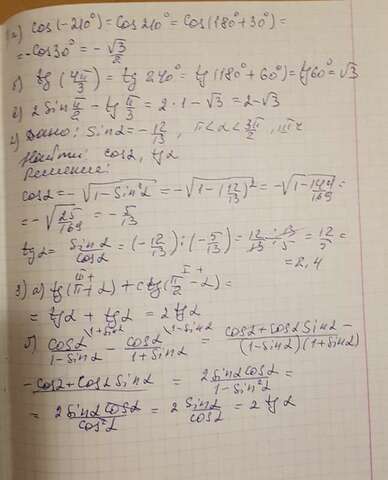 а) cos(-210°) = cos 210° = cos(180°+30°) =
= -cos 30° = -√3/2
б) tg(4π/3) = tg 240° = tg(180°+60°) = tg 60° = √3
в) 2 sin π/2 - tg π/3 = 2·1 - √3 = 2-√3
2) Дано: sin α = -12/13, π<α<3π/2, III ч
Найти: cos α, tg α
Решение:
cos α = -√(1-sin²α) = -√(1-(12/13)²) = -√(1-144/169) =
= -√(25/169) = -5/13
tg α = sin α/cos α = (-12/13):(-5/13) = 12·13/13·5 = 12/5 =
= 2,4
III + I +
3) а) tg(π+α) + ctg(π/2-α) =
= tg α + tg α = 2 tg α
1+sin α 1-sin α
б) cos α/(1-sin α) - cos α/(1+sin α) = cos α + cos α sin α -/(1-sin α)(1+sin α)
-cos α + cos α sin α = 2 sin α cos α/(1-sin²α) =
= 2 sin α cos α/cos²α = 2 sin α/cos α = 2 tg α